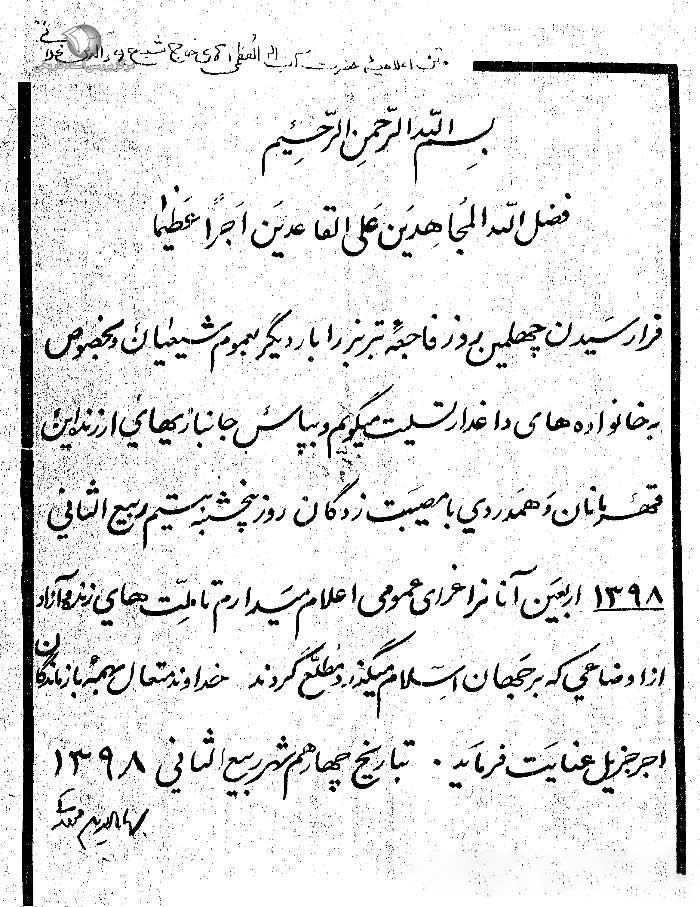 متن اعلامیه حضرت آیت الله العظمی آقای حاج شیخ
بِسمِ اللّه الرّحمنِ الرّحیمِ
فضل اللّه المُجاهِدینَ عَلی القاعدینَ اَجراً عَظیما
فرا رسیدن چهلمین روز فاجعهٔ تبریز را بار دیگر بعموم شیعیان و بخصوص
به خانواده های داغدار تسلیت میگویم و بپاس جانبازیهای ارزنده این
قهرمانان و همدردی با مصیبت زدگان روز پنجشنبه بیستم ربیع الثانی
۱۳۹۸ اربعین آنانرا عزای عمومی اعلام میدارم تا ملّت های زنده و آزاد
از اوضاعی که بر جهان اسلام میگذرد مطلّع گردند خداوند متعال بهمهٔ بازماندگان
اجر جزیل عنایت فرماید . بتاریخ چهاردهم شهر ربیع الثانی ۱۳۹۸
بهاءالدین محلاتی